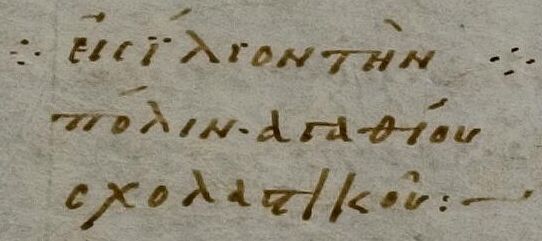 ⁘ εἰσ ἴλιον τὴν ⁘
πόλιν· ἀγαθίου
σχολαστικοῦ:—